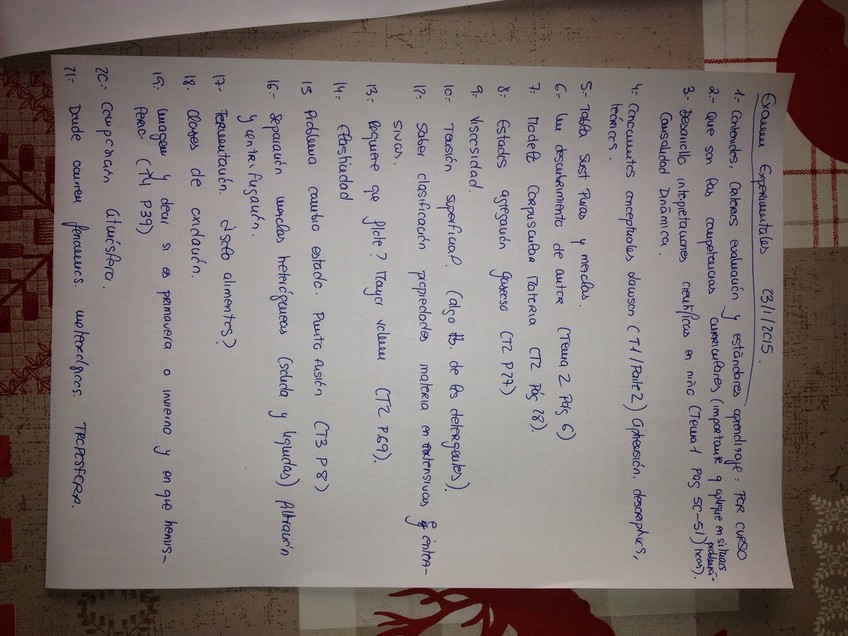 Examen Experimentales 23/1/2015.
1- Contenidos, Criterios evaluación y estándares aprendizaje: POR CURSO
2- que son las competencias curriculares, (importante q aplique en
3- Desarrollo interpretaciones científicas en niño (Tema 1 Pág 50-51)
Causalidad Dinámica.
4- Conocimientos conceptuales Lawson (T1/Parte 2) Aprensión, descriptivos,
teóricos.
5- Tabla Sust Puras y mezclas.
6- Un descubrimiento de autor (Tema 2 Pág 6)
7- Modelo Corpuscular Materia (T2 Pág 28).
8- Estados agregación gaseoso (T2 P27)
9- Viscosidad.
10- Tensión superficial. (algo de los detergentes).
12- Saber clasificación propiedades materia en extensivas e inten-
sivas.
13- Requiere que flote? Mayor volumen (T2 P.69).
14- Elasticidad
15 Problema cambio estado. Punto fusión (T3 P8)
16- Separación mezclas heterogéneas (sólida y líquidas) filtración
y centrifugación.
17- Fermentación. ¿solo alimentos?
18- Clases de oxidación.
19- Imagen y decir si es primavera o invierno y en que hemis-
ferio (T4 P39)
20- Composición Atmósfera.
21- Donde ocurren fenómenos meteorológicos TROPOSFERA.